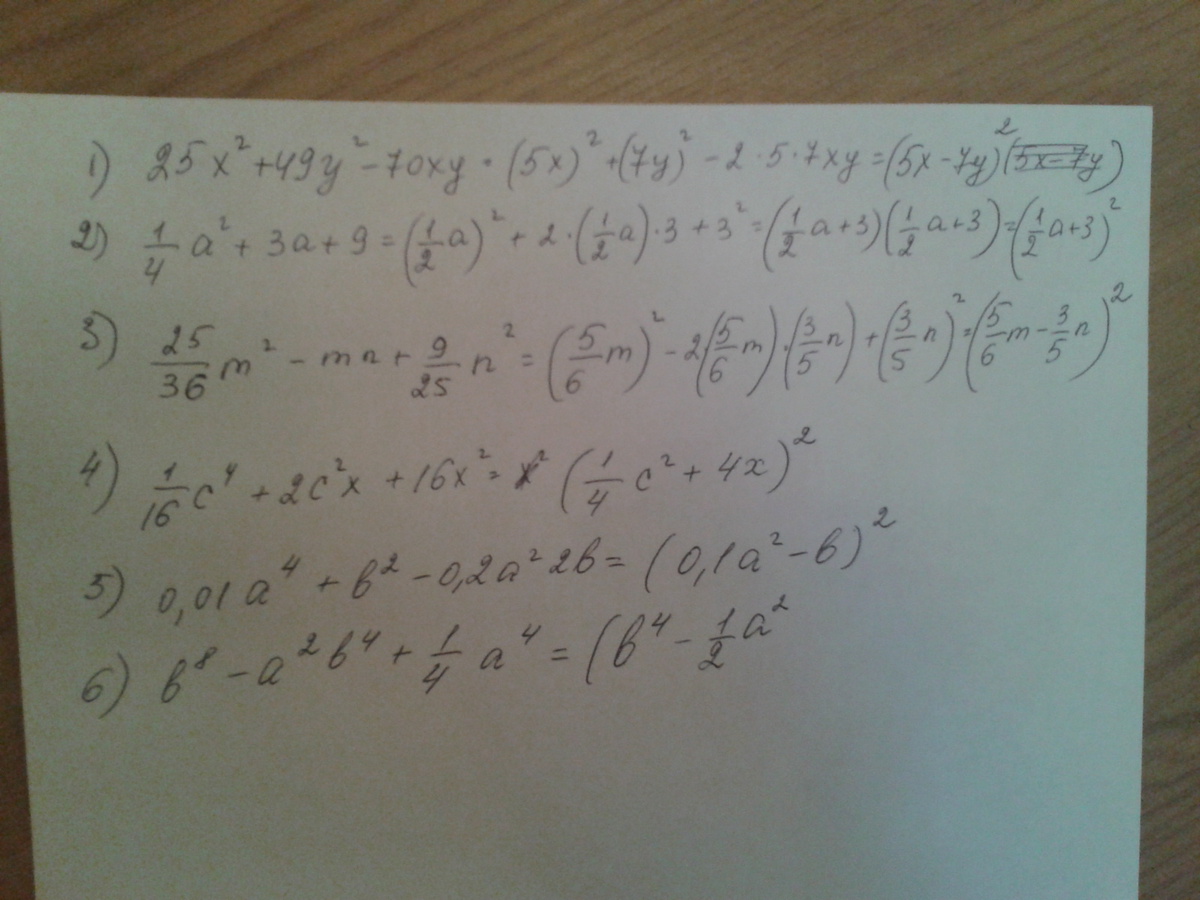 1) 25x² + 49y² - 70xy = (5x)² + (7y)² - 2 · 5 · 7xy = (5x - 7y)² (5x - 7y)
2) 1/4 a² + 3a + 9 = (1/2 a)² + 2 · (1/2 a) · 3 + 3² = (1/2 a + 3)(1/2 a + 3) = (1/2 a + 3)²
3) 25/36 m² - mn + 9/25 n² = (5/6 m)² - 2(5/6 m) · (3/5 n) + (3/5 n)² = (5/6 m - 3/5 n)²
4) 1/16 c⁴ + 2c²x + 16x² = (1/4 c² + 4x)²
5) 0,01a⁴ + b² - 0,2a² 2b = (0,1a² - b)²
6) b⁸ - a²b⁴ + 1/4 a⁴ = (b⁴ - 1/2 a²